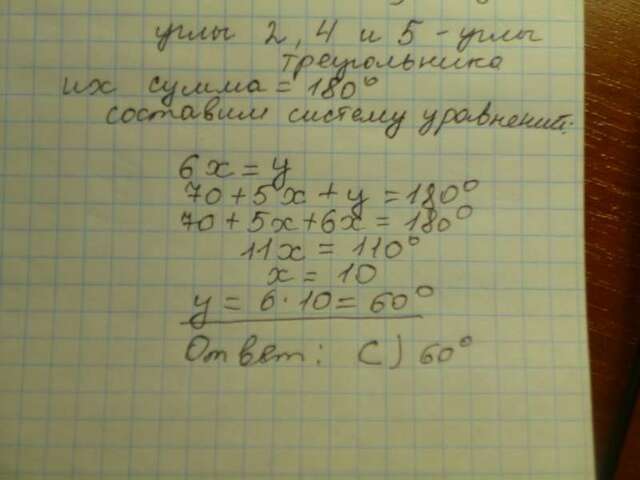 углы 2, 4 и 5 - углы
треугольника
их сумма = 180°
составим систему уравнений:
6x = y
70 + 5x + y = 180°
70 + 5x + 6x = 180°
11x = 110°
x = 10
y = 6 · 10 = 60°
Ответ: C) 60°